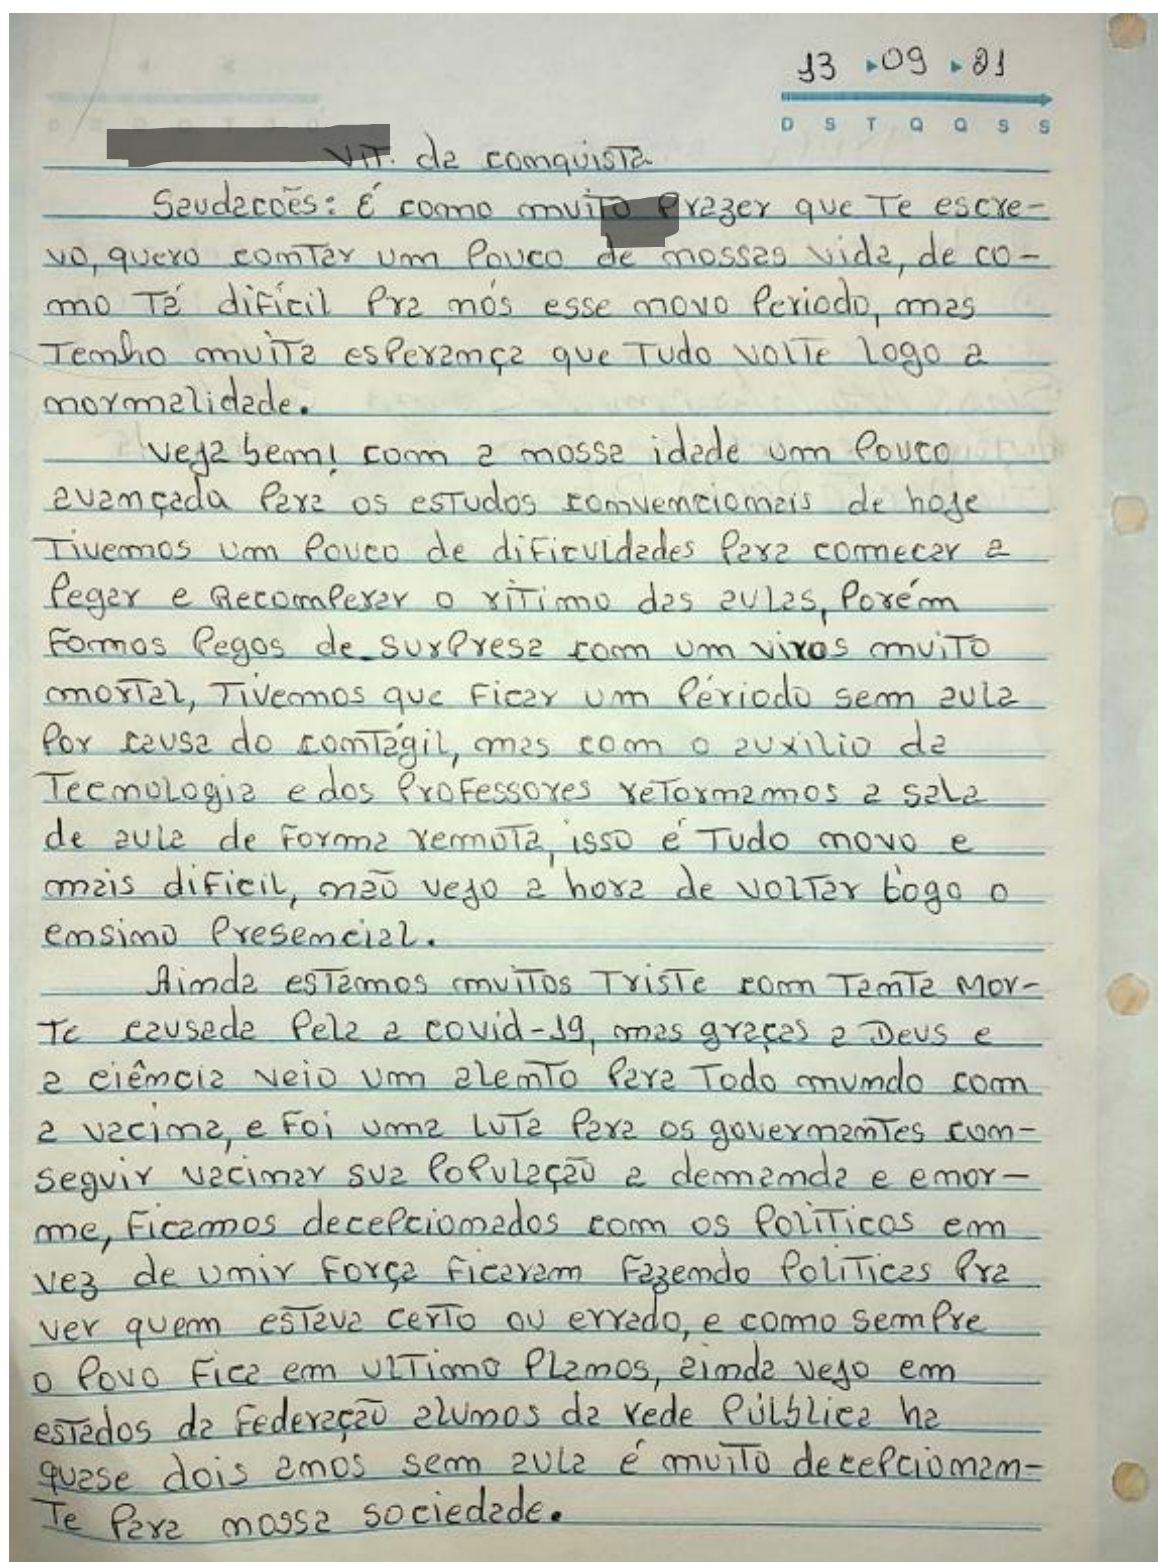 13 ▸09 ▸21
D S T Q Q S S
Vit. da conquista
Saudacões: É como muito Prazer que Te escre-
vo, quero contar um Pouco de nossas vida, de co-
mo Tá difícil Pra nós esse novo Periodo, mas
Tenho muita esperança que Tudo volte logo a
normalidade.
Veja bem! com a nossa idade um Pouco
avançada Para os estudos convencionais de hoje
Tivemos um Pouco de dificuldades Para comecar a
Pegar e Recomperar o rítimo das aulas, Porém
Fomos Pegos de surpresa com um viros muito
mortal, Tivemos que Ficar um Périodo sem aula
Por causa do contágil, mas com o auxilio da
Tecnologia e dos Professores retornamos a sala
de aula de Forma remota, isso é Tudo novo e
mais dificil, não vejo a hora de voltar logo o
ensino Presencial.
Ainda estamos muitos Triste com Tanta Mor-
Te causada Pela a covid-19, mas graças a Deus e
a ciência veio um alento Para Todo mundo com
a vacina, e Foi uma luta Para os governantes con-
seguir vacinar sua População a demanda e enor-
me, Ficamos decepcionados com os Políticos em
vez de unir Força Ficaram Fazendo Politicas Pra
ver quem estava certo ou errado, e como sempre
o Povo Fica em ultimo Planos, ainda vejo em
estados da Federação alunos da rede Púlblica ha
quase dois anos sem aula é muito decepcionan-
Te Para nossa sociedade.